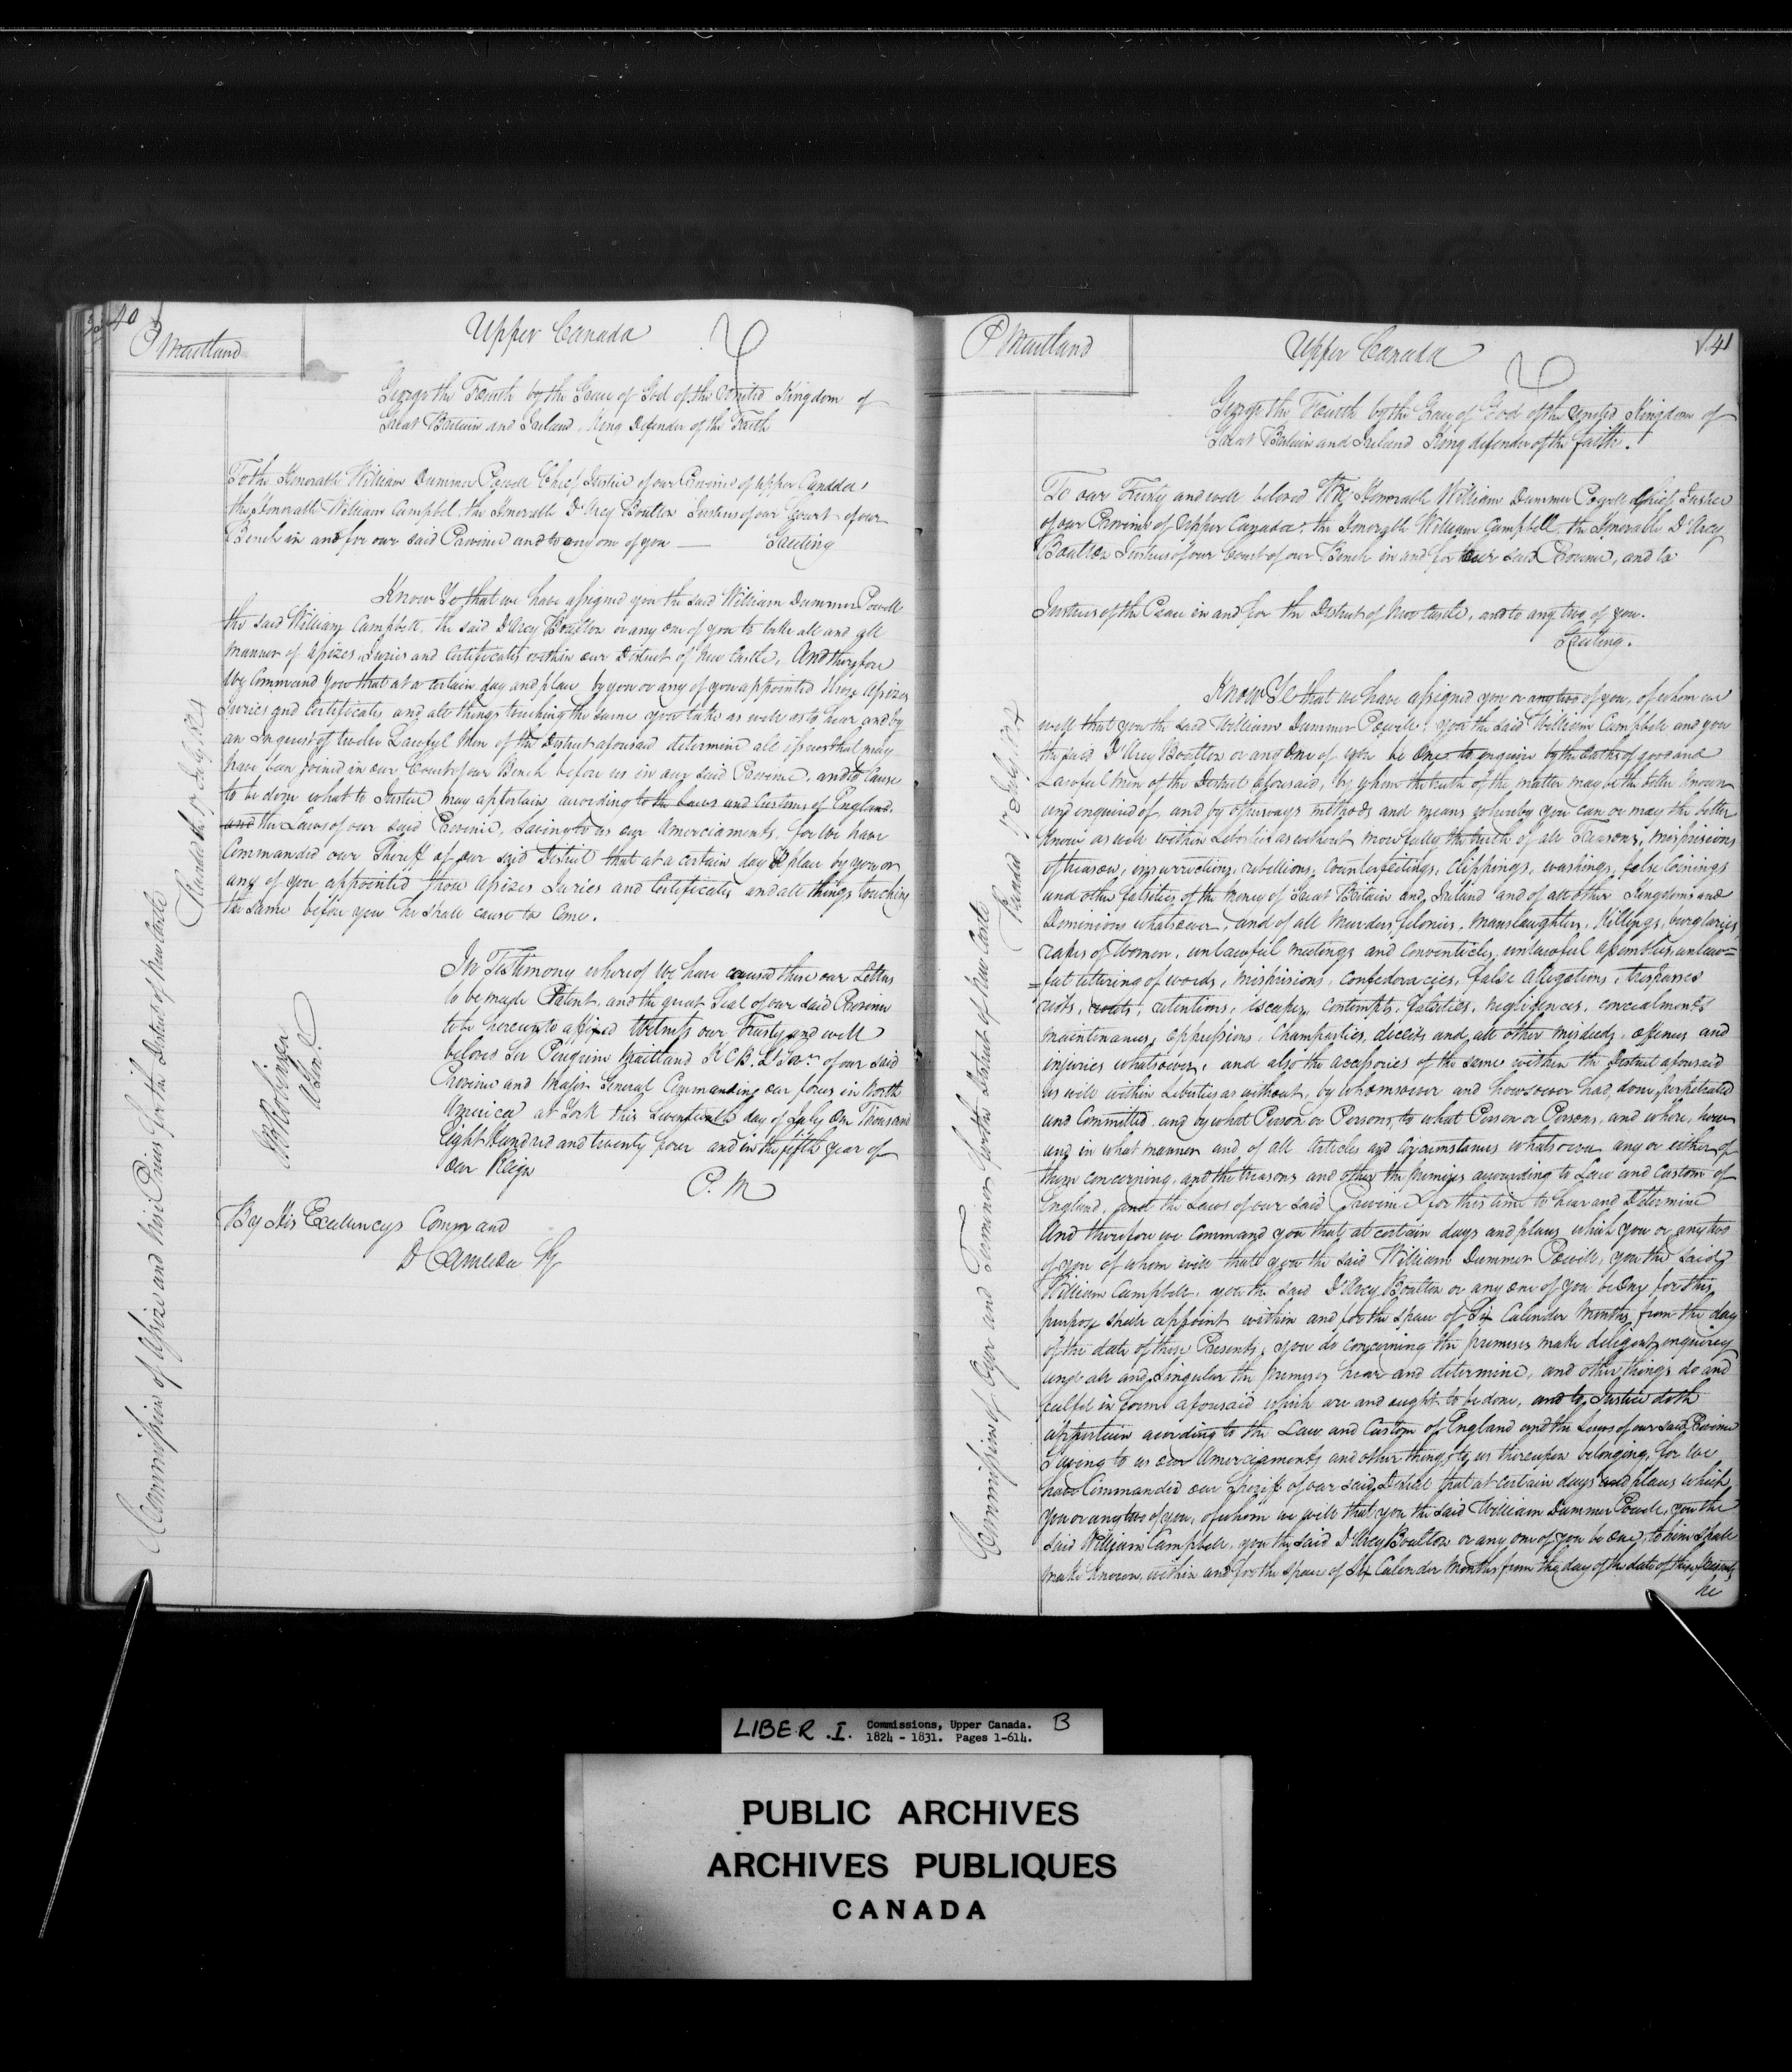 40
P Maitland
Upper Canada
George the Fourth by the Grace of God of the United Kingdom of
Great Britain and Ireland, King Defender of the Faith
To the Honorable William Dummer Powell Chief Justice of our Province of Upper Canada,
the Honorable William Campbel, the Honorable D'Arcy Boulton Justices of our Court of our
Bench in and for our said Province and to any one of you — Greeting
Know Ye that we have assigned you the said William Dummer Powell
the said William Campbell, the said D'Arcy Boulton or any one of you to take all and all
manner of Assizes, Juries and Certificates within our District of New Castle, And therefore
We Command you that at a certain day and place by you or any of you appointed those Assizes
Juries and Certificates and all things touching the same you take as well as to hear and by
an Inquest of twelve Lawful Men of the District aforesaid determine all issues that may
have been joined in our Court of our Bench before us in our said Province, and to Cause
to be done what to Justice may appertain according to the Laws and Customs of England.
and the Laws of our said Province, Saving to us our Amerciaments, for We have
Commanded our Sheriff of our said District that at a certain day & place by you or
any of you appointed those Assizes Juries and Certificates and all things touching
the same before you he shall cause to Come.
In Testimony whereof We have caused these our Letters
to be made Patent, and the great Seal of our said Province
to be hereunto affixed Witness our Trusty and well
beloved Sir Peregrine Maitland K C B. Lt Govr of our said
Province and Major General Commanding our forces in North
America at York this Seventeenth day of July One Thousand
Eight Hundred and twenty four and in the fifth year of
our Reign
P. M
By His Excellencys Command
D Cameron Sy
Commission of Assize and Nisi Prius for the District of New Castle
Jno B Robinson
Att Genl
Standed the 17 July 1824
P Maitland
Upper Canada
41
George the Fourth by the Grace of God of the United Kingdom of
Great Britain and Ireland King defender of the faith.
To our Trusty and well beloved The Honorable William Dummer Powell Chief Justice
of our Province of Upper Canada, the Honorable William Campbell, the Honorable D'Arcy
Boulton Justices of our Court of our Bench in and for our said Province, and to
Justices of the Peace in and for the District of New Castle, and to any two of you.
Greeting.
Know Ye that we have assigned you or any two of you, of whom we
will that you the said William Dummer Powell, you the said William Campbell and you
the said D'Arcy Boulton or any One of you be One to enquire by the Oaths of good and
Lawful Men of the District aforesaid, by whom the truth of the matter may be the better known
and enquired of, and by other ways methods and means whereby you can or may the better
know as well within Liberties as without more fully the truth of all Treasons, misprisions
of treason, insurrections, rebellions, Counterfeitings, Clippings, washings, false Coinings
and other falsities of the money of Great Britain and Ireland and of all other Kingdoms and
Dominions whatsoever, and of all Murders, felonies, Manslaughters, Killings, burglaries
rapes of Women, unlawful meetings and Conventicles, unlawful Assemblies, unlaw=
=ful uttering of words, Misprisions, Confederacies, false Allegations, trespasses
riots, routs, retentions, escapes, Contempts, falsities, negligences, concealments
Maintenances, Oppressions, Champerties, deceits and all other misdeeds, offences and
injuries whatsoever, and also the accessories of the same within the District aforesaid
as well within Liberties as without, by whomsoever and howsoever had, done, perpetrated
and Committed, and by what Person or Persons, to what Person or Persons, and where, how
and in what manner and of all Articles and Circumstances whatsoever any or either of
them concerning, and the treasons and other the premises according to Law and Custom of
England, and the Laws of our said Province for this time to hear and Determine
And therefore we Command you that at certain days and places which you or any two
of you of whom will that you the said William Dummer Powell, you the said
William Campbell, you the said D'Arcy Boulton or any one of you be One for this
purpose shall appoint within and for the space of Six Calender Months from the day
of the date of these Presents, you do concerning the premises make diligent enquirey
and all and Singular the premises hear and determine, and other things do and
fulfil in form aforesaid which are and ought to be done, and to Justice doth
appertain acording to the Law and Custom of England and the Laws of our said Province
Saving to us our Amerciaments and other things to us thereupon belonging, for We
have Commanded our Sheriff of our said District that at certain days and places which
you or any two of you, of whom we will that you the said William Dummer Powell, you the
said William Campbell, you the said D'Arcy Boulton or any one of you be One, to him shall
make known, within and for the space of Six Calender Months from the day of the date of these Presents
he
Commission of Oyer and Terminer for the District of New Castle
Standed 17 July 1824
LIBER .I. Commissions, Upper Canada. B
1824 - 1831. Pages 1-614.
PUBLIC ARCHIVES
ARCHIVES PUBLIQUES
CANADA